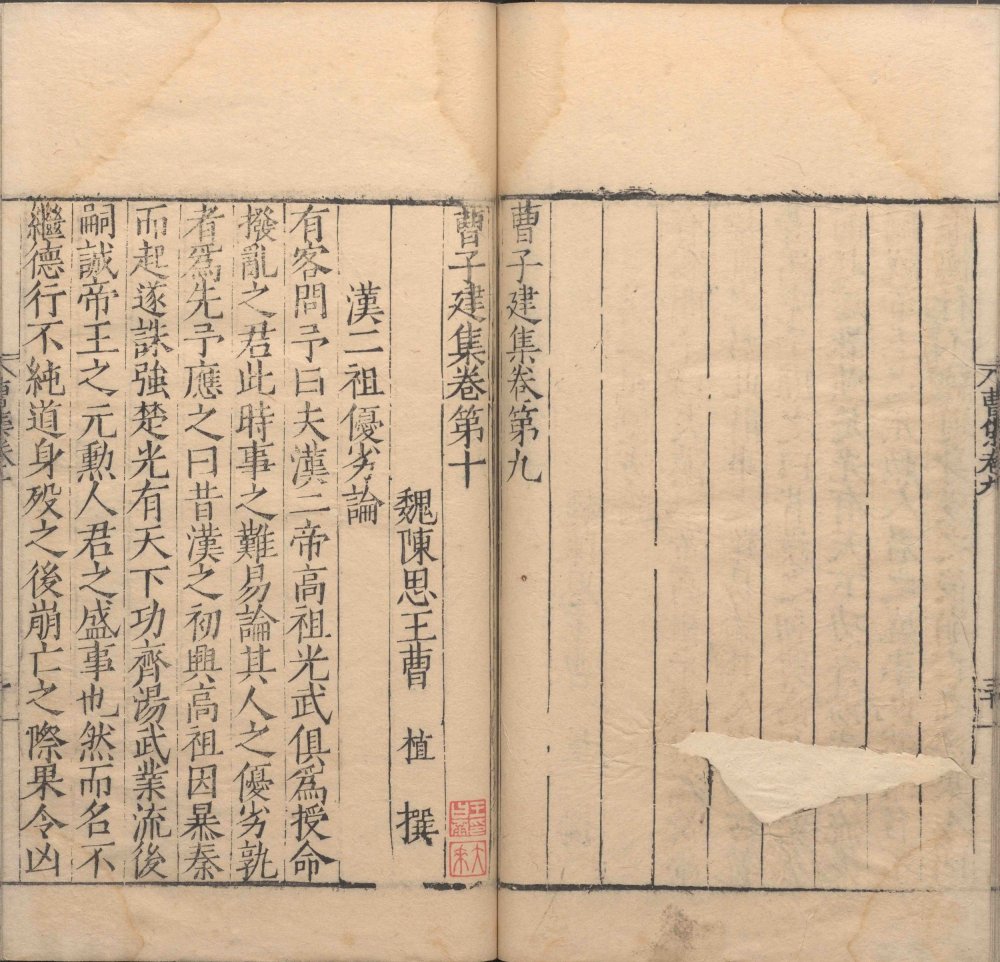 曹子建集卷第九
曹子建集卷第十
魏陳思王曹植撰
漢二祖優劣論
有客問予曰夫漢二帝高祖光武俱爲授命
撥亂之君此時事之難易論其人之優劣孰
者爲先予應之曰昔漢之初興高祖因暴秦
而起遂誅強楚光有天下功齊湯武業流後
嗣誠帝王之元勳人君之盛事也然而名不
繼德行不純道身殁之後崩亡之際果令凶